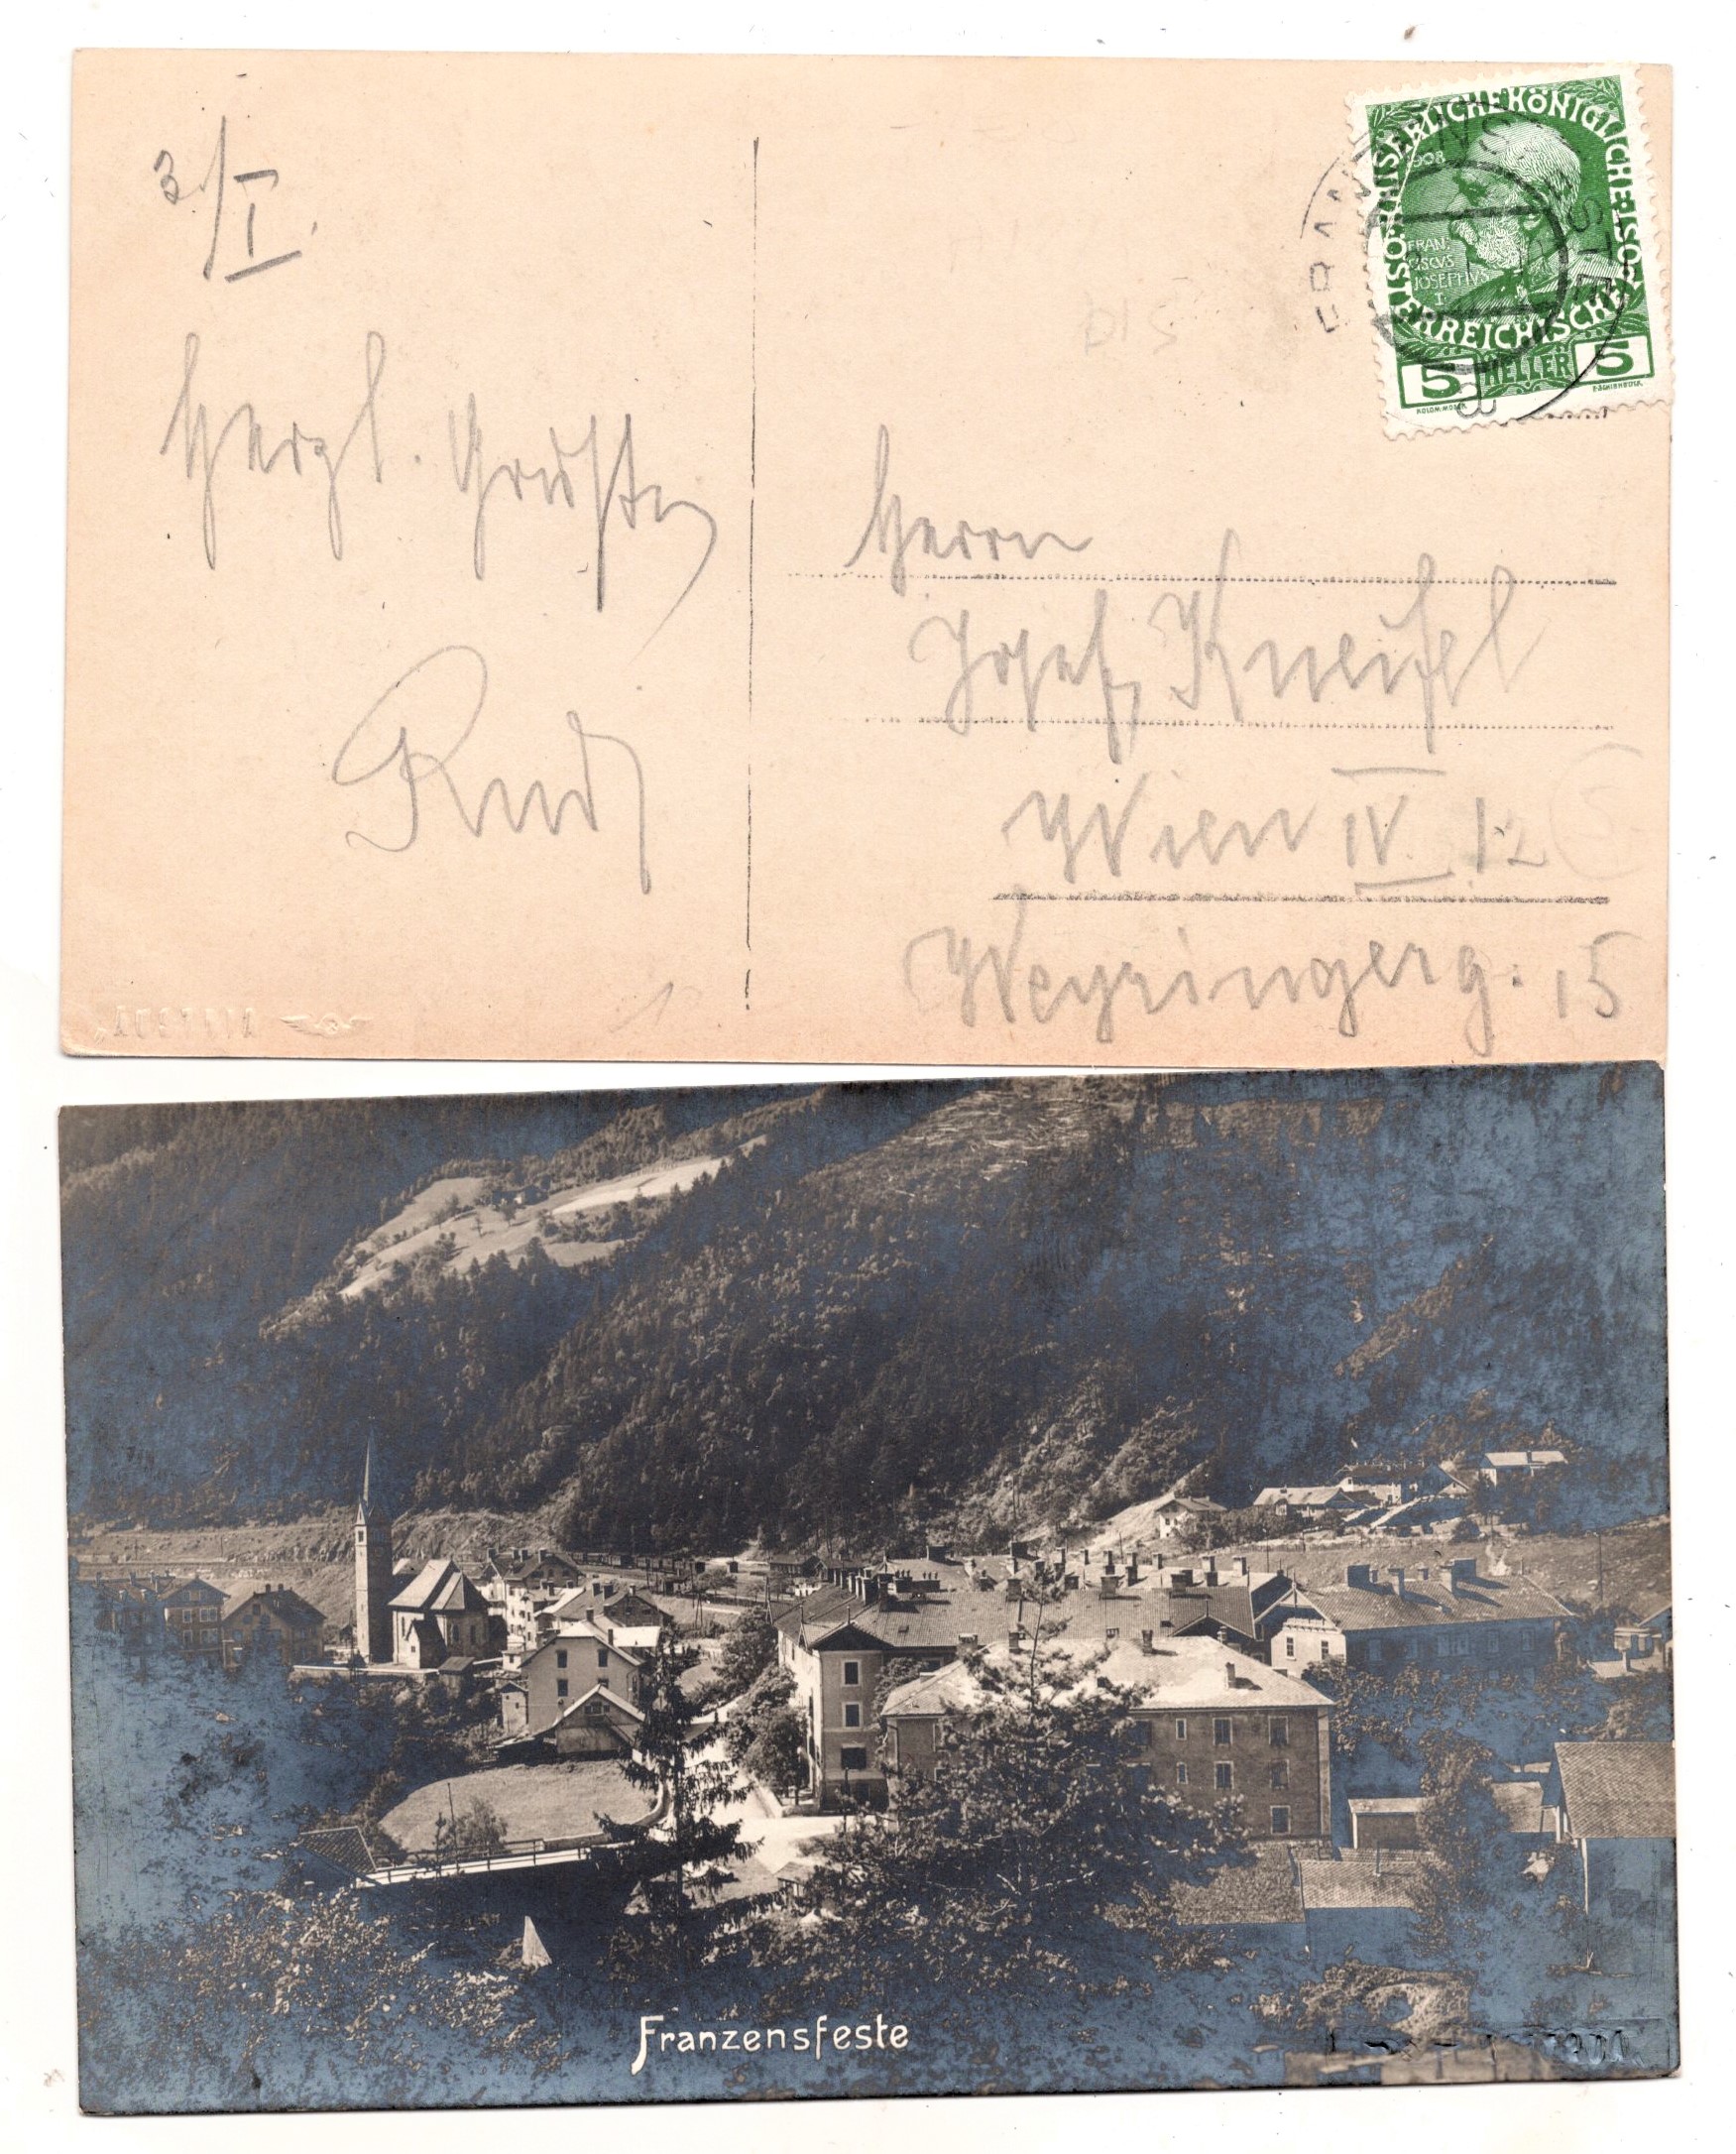 3./I.
Herzl. Grüße
Rud
KAISERLICHE KÖNIGLICHE ÖSTERREICHISCHE
1908
FRAN
CISCVS
JOSEPHVS
I
5 HELLER 5
KOLOM. MOSER
F. SCHIRNBÖCK
FRANZENSFESTE
Herrn
Josef Kneifel
Wien IV. 12
Weyringerg. 15
Franzensfeste